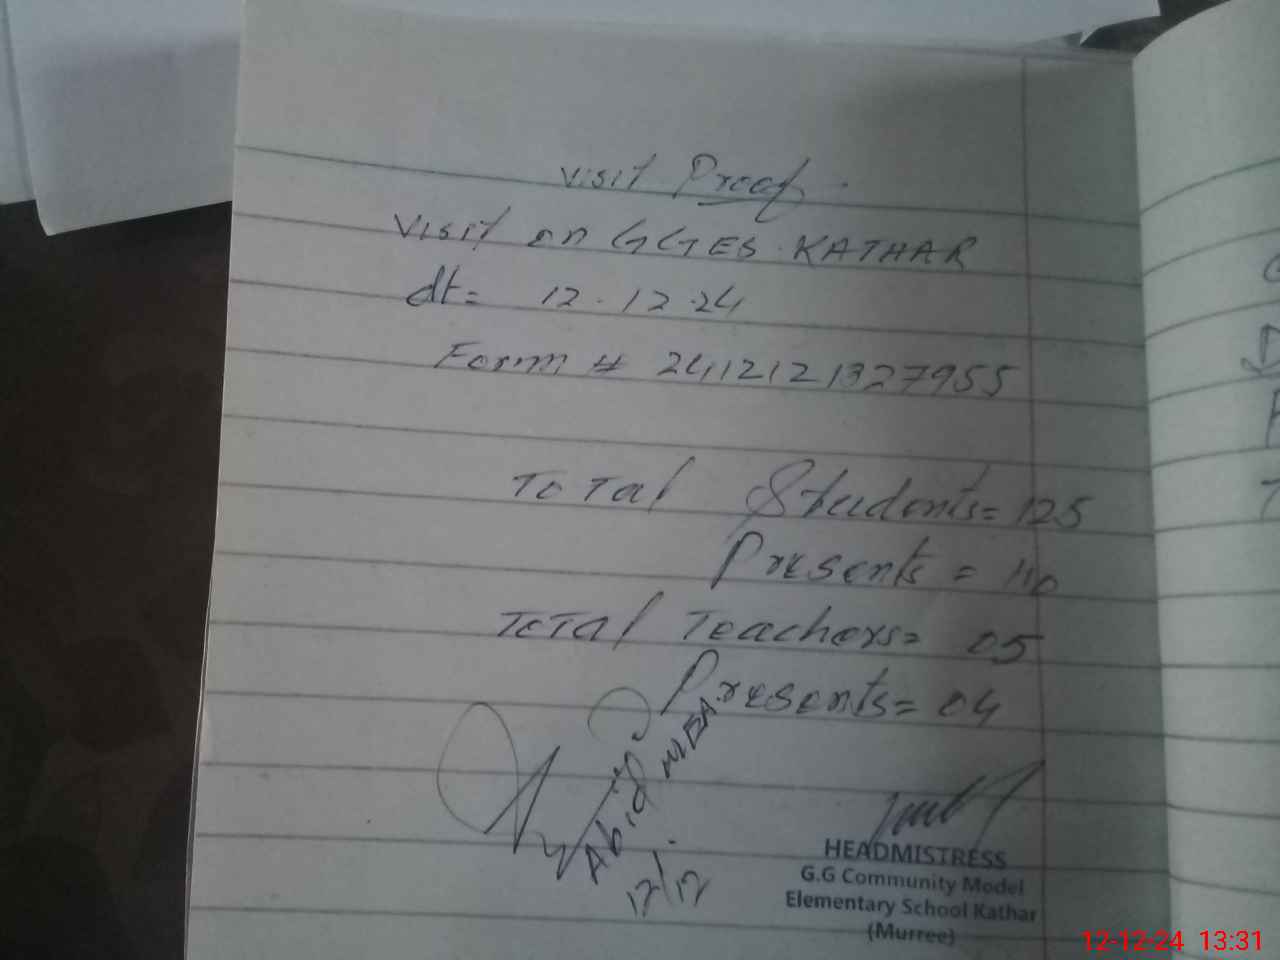 Visit Proof.
Visit on GGES. KATHAR
dt= 12.12.24
Form # 2412121327955
Total Students= 125
Presents = 110
Total Teachers= 05
Presents= 04
Abid
12/12
HEADMISTRESS
G.G Community Model
Elementary School Kathar
(Murree)
12-12-24 13:31